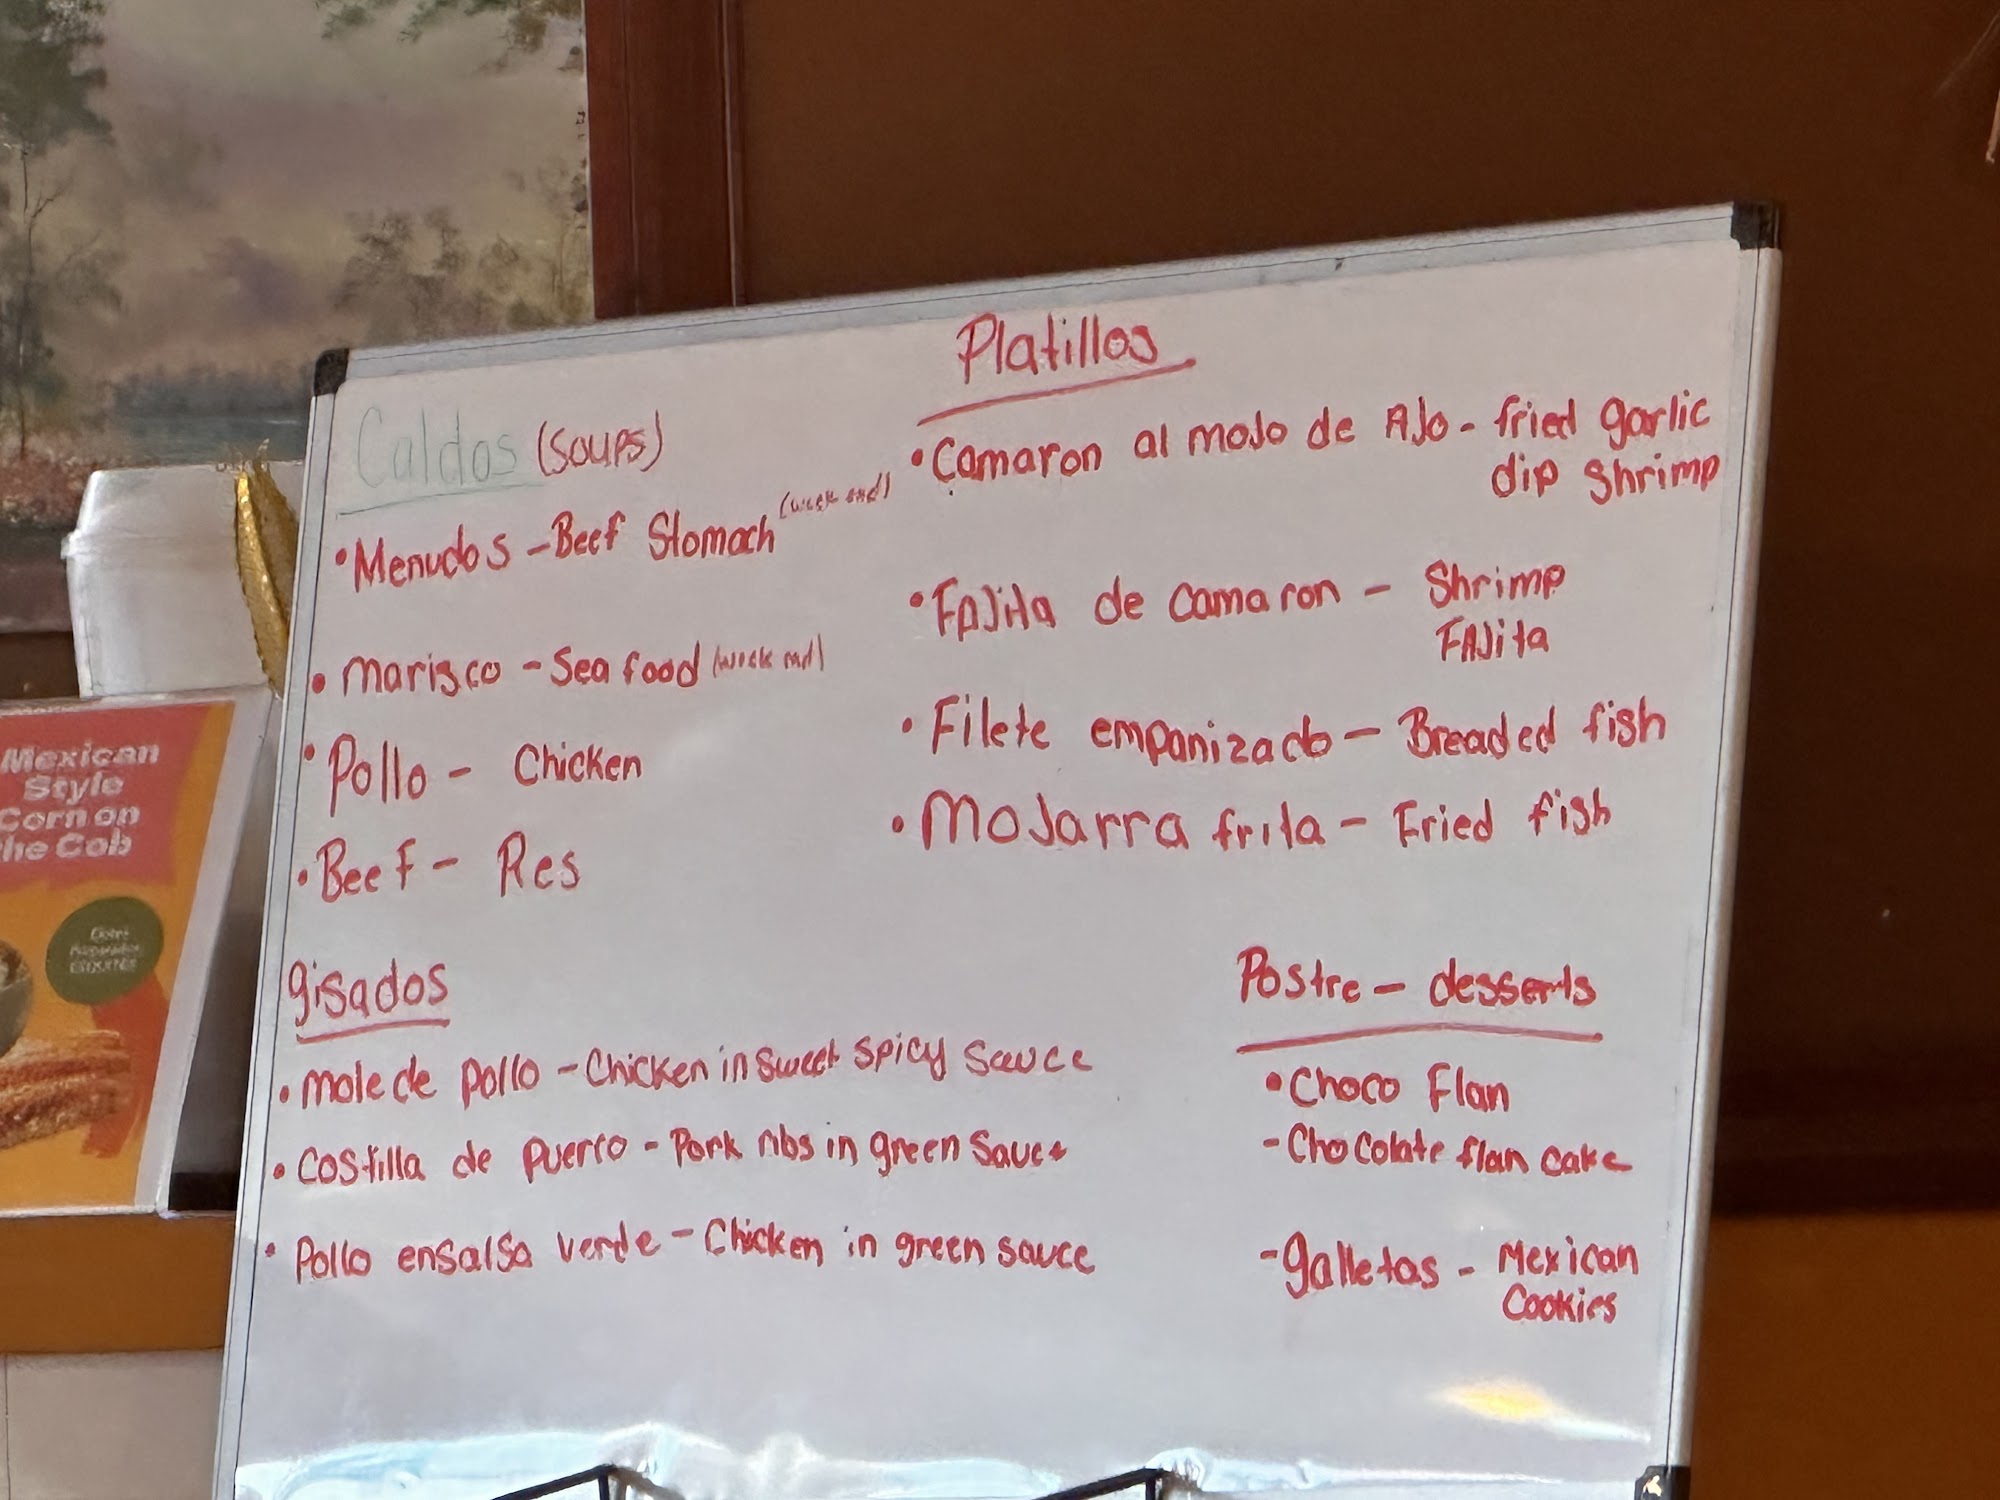 Platillos
Caldos (Soups)
• Menudos - Beef Stomach (week end)
• Marisco - Sea food (week end)
• Pollo - Chicken
• Beef - Res
• Camaron al moJo de AJo - fried garlic
dip shrimp
• FAJita de camaron - Shrimp
FAJita
• Filete empanizado - Breaded fish
• MoJarra frita - Fried fish
gisados
• mole de pollo - Chicken in sweet spicy sauce
• Costilla de puerro - Pork ribs in green sauce
• Pollo ensalsa verde - Chicken in green sauce
Postre - desserts
• Choco Flan
- Chocolate flan cake
- galletas - Mexican
Cookies
Mexican
Style
Corn on
the Cob